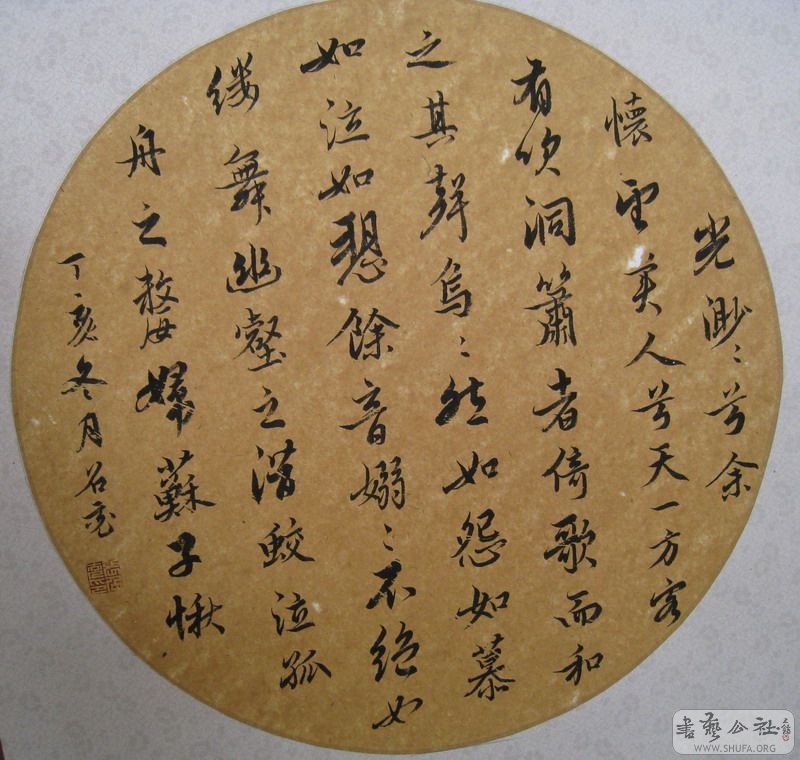 光渺〻兮余
懷望美人兮天一方客
有吹洞簫者倚歌而和
之其聲烏〻然如怨如慕
如泣如愬餘音嫋〻不絕如
縷舞幽壑之潛鮫泣孤
舟之嫠婦蘇子愀
丁亥冬月石
書藝公社
WWW.SHUFA.ORG